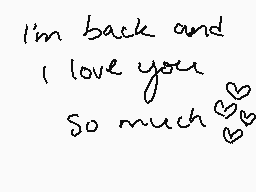 I'm back and
i love you
so much